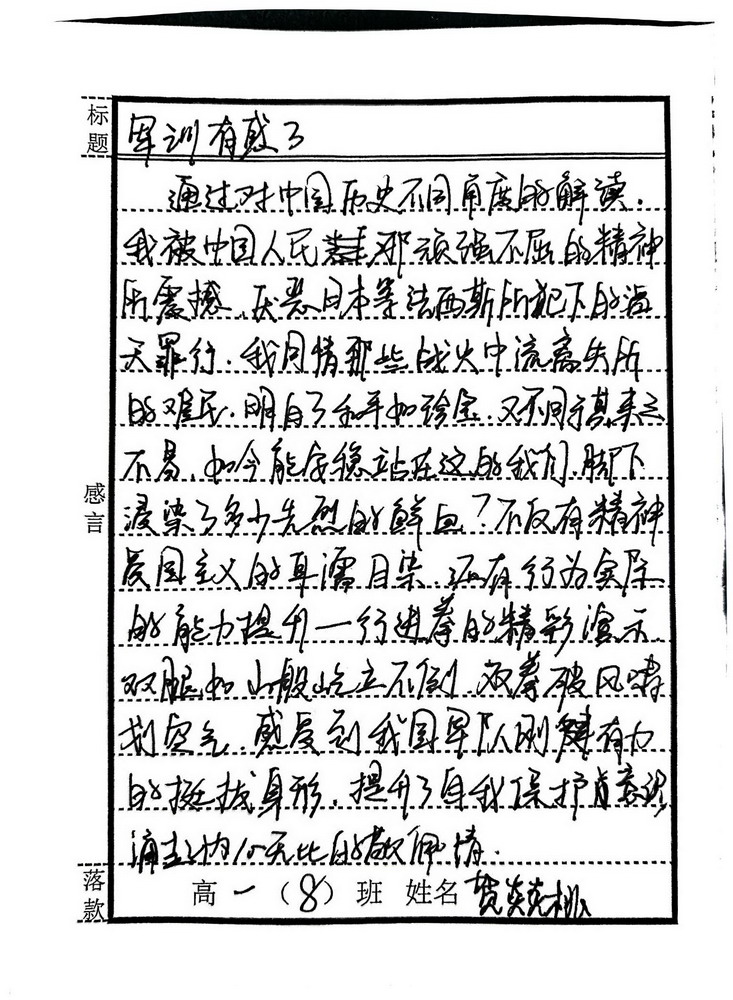 标题
军训有感3
通过对中国历史不同角度的解读.
我被中国人民那顽强不屈的精神
所震撼.厌恶日本等法西斯所犯下的滔
天罪行.我同情那些战火中流离失所
的难民.明白了和平如珍宝.又不同于其来之
不易.如今能安稳站在这的我们.脚下
浸染了多少先烈的鲜血?不仅有精神
爱国主义的耳濡目染.还有行为实际
的能力提升—行进拳的精彩演示
双腿如山般屹立不倒.双拳破风
划空气.感受到我国军队刚健有力
的挺拔身形.提升了自我保护意识
涌内心无比的敬佩情.
感言
落款
高一(8)班 姓名